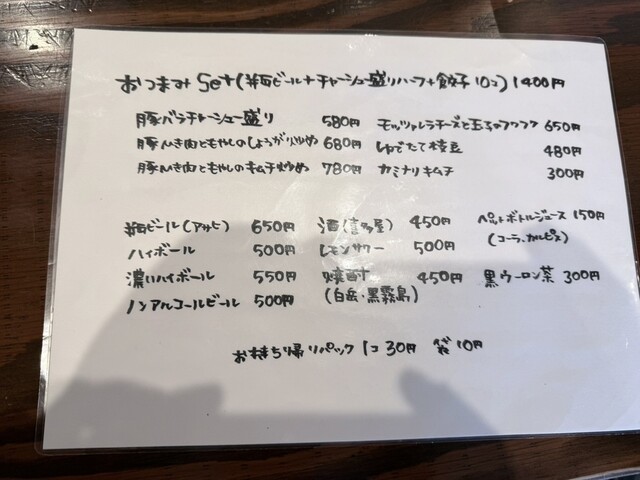 おつまみSet(瓶ビール+チャーシュー盛りハーフ+餃子10コ) 1400円
豚バラチャーシュー盛り 580円 モッツァレラチーズと玉子のフワフワ 650円
豚ひき肉ともやしのしょうが炒め 680円 ゆでたて枝豆 480円
豚ひき肉ともやしのキムチ炒め 780円 カミナリキムチ 300円
瓶ビール(アサヒ) 650円 酒(喜多屋) 450円 ペットボトルジュース 150円
ハイボール 500円 レモンサワー 500円 (コーラ、カルピス)
濃いハイボール 550円 焼酎 450円 黒ウーロン茶 300円
ノンアルコールビール 500円 (白岳・黒霧島)
お持ち帰りパック 1コ 30円 袋 10円